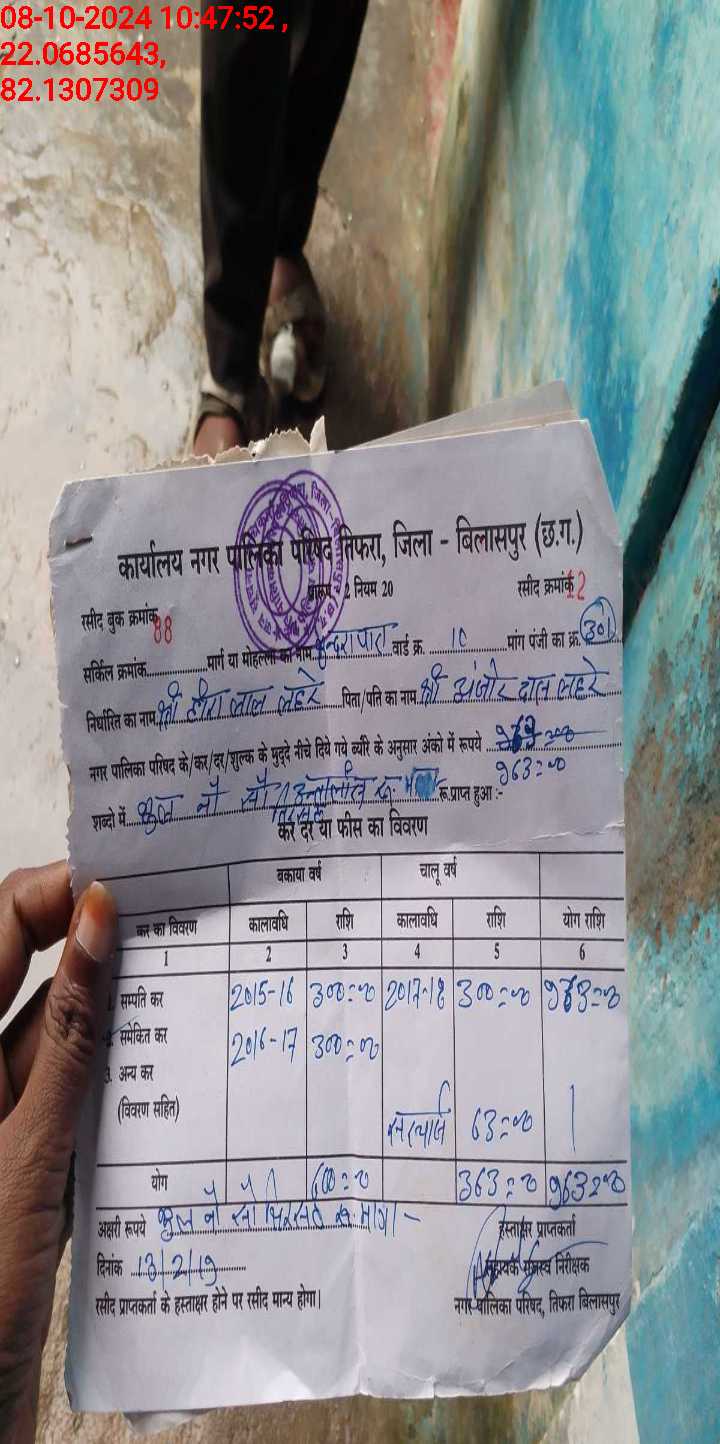 08-10-2024 10:47:52 ,
22.0685643,
82.1307309
कार्यालय नगर पालिका परिषद तिफरा, जिला - बिलासपुर (छ.ग.)
2 नियम 20
रसीद बुक क्रमांक 88 रसीद क्रमांक 12
सर्किल क्रमांक............मार्ग या मोहल्ला का नाम वार्ड क्र. 10 मांग पंजी का क्र. 301
निर्धारित का नाम श्री हीरा लाल लहरे पिता/पति का नाम श्री अंजोर दास लहरे
नगर पालिका परिषद के/कर/दर/शुल्क के मुद्दे नीचे दिये गये ब्यौरे के अनुसार अंको में रूपये 963=00
शब्दो में कुल नौ सौ तिरसठ रू रू.प्राप्त हुआ :-
कर दर या फीस का विवरण
बकाया वर्ष चालू वर्ष
कर का विवरण कालावधि राशि कालावधि राशि योग राशि
1 2 3 4 5 6
1. सम्पति कर 2015-16 300=00 2017-18 300=00 963=00
2. समेकित कर 2016-17 300=00
3. अन्य कर
(विवरण सहित) सरचार्ज 63=00
योग 600=00 363=00 963=00
अक्षरी रूपये कुल नौ सौ तिरसठ रू. मात्र
हस्ताक्षर प्राप्तकर्ता
दिनांक 13/2/19
सहायक राजस्व निरीक्षक
रसीद प्राप्तकर्ता के हस्ताक्षर होने पर रसीद मान्य होगा।
नगर पालिका परिषद, तिफरा बिलासपुर